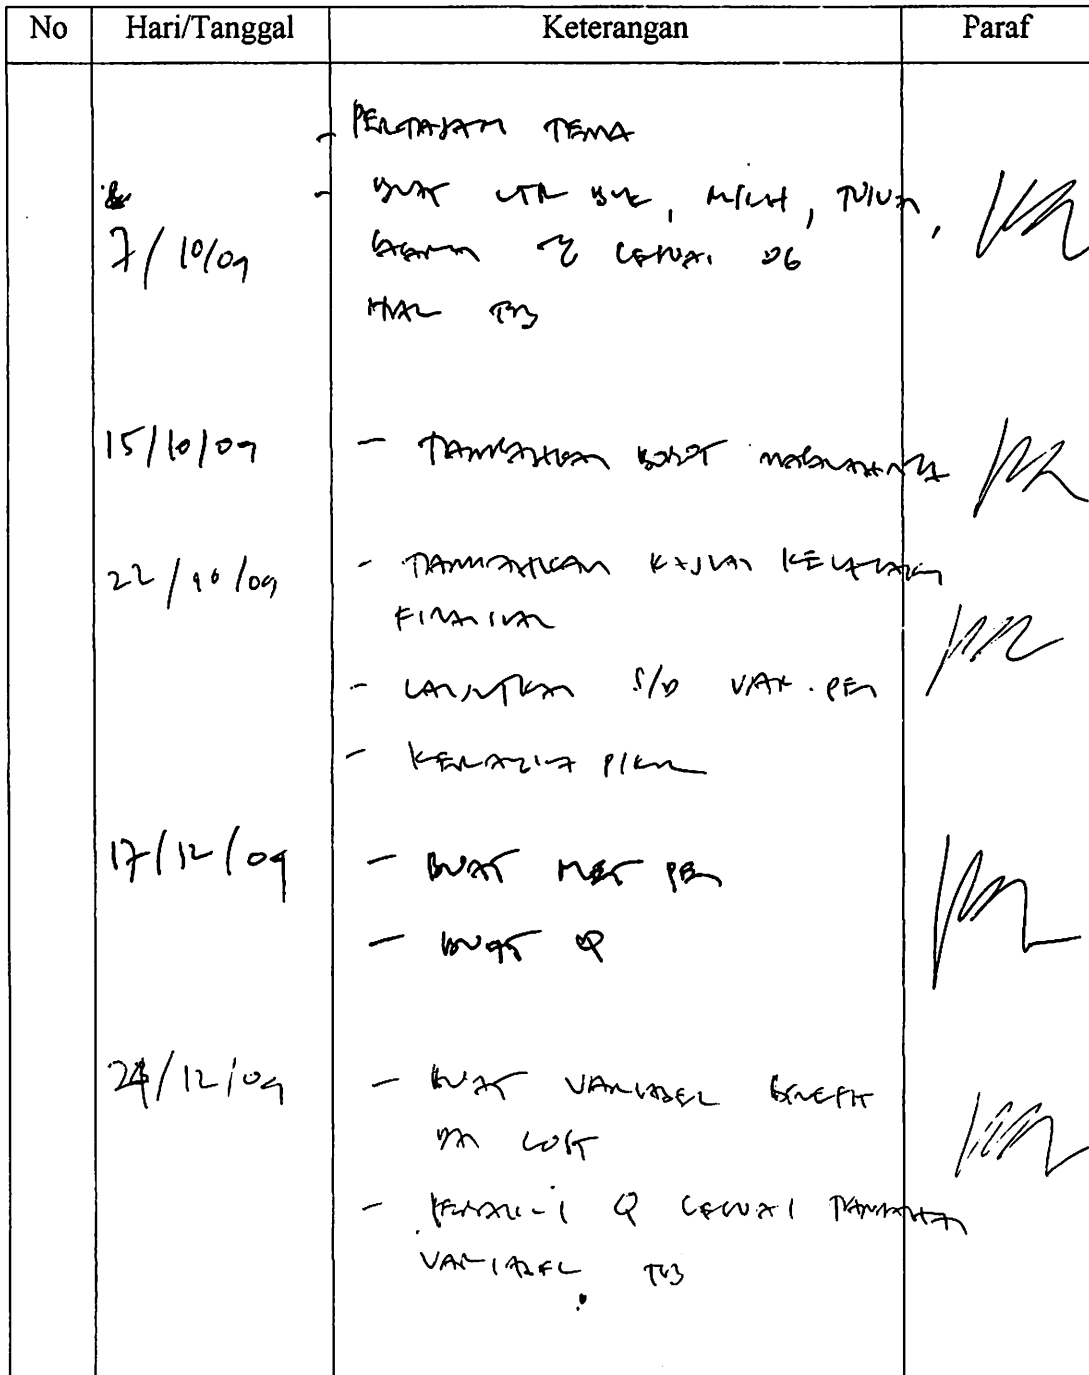 No Hari/Tanggal Keterangan Paraf
- PERTAJAM TEMA
- BUAT LTR BLK, , TUJUAN,
7/10/09 SESUAI DG
HAL TSB
15/10/09 - TAMBAHKAN BOBOT MASALAHNYA
22/10/09 - TAMBAHKAN KAJIAN KELAYAKAN
FINANSIAL
- LANJUTKAN S/D VAR. PEN
- KERANGKA PIKIR
17/12/09 - BUAT MET PEN
- BUAT Q
24/12/09 - BUAT VARIABEL BENEFIT
DAN COST
- Q SESUAI TAMBAHAN
VARIABEL TSB